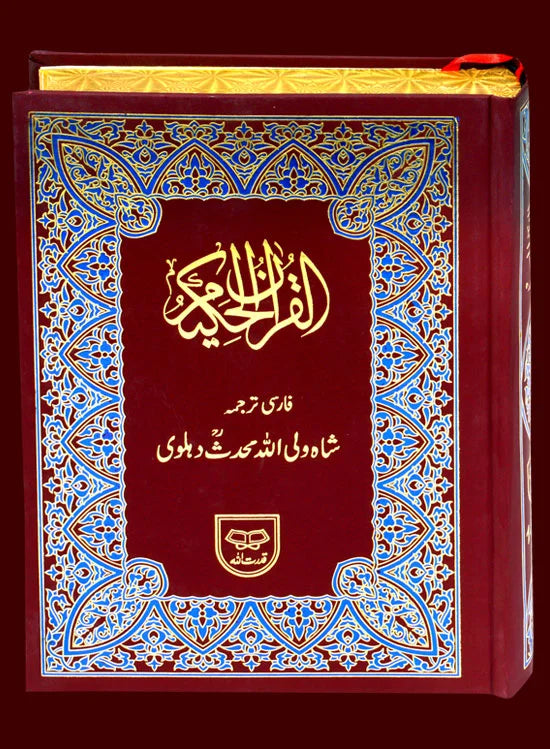 القرآن الحکیم
فارسی ترجمہ
شاہ ولی اللہ محدث دہلوی
قدرت اللہ